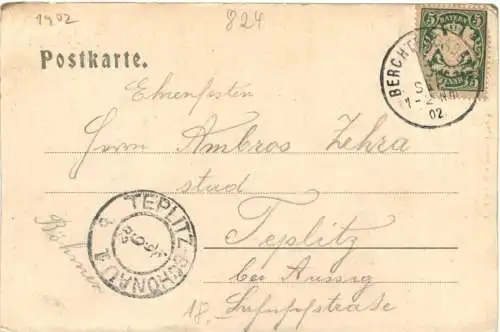 1902
824
Postkarte.
5 BAYERN 5
PFENNIG
BERCHT
S
1
02.
Ehrenfesten
Herrn Ambros Zehra
stud
Teplitz
bei Aussig
18.
Böhmen
TEPLITZ-SCHÖNAU 1